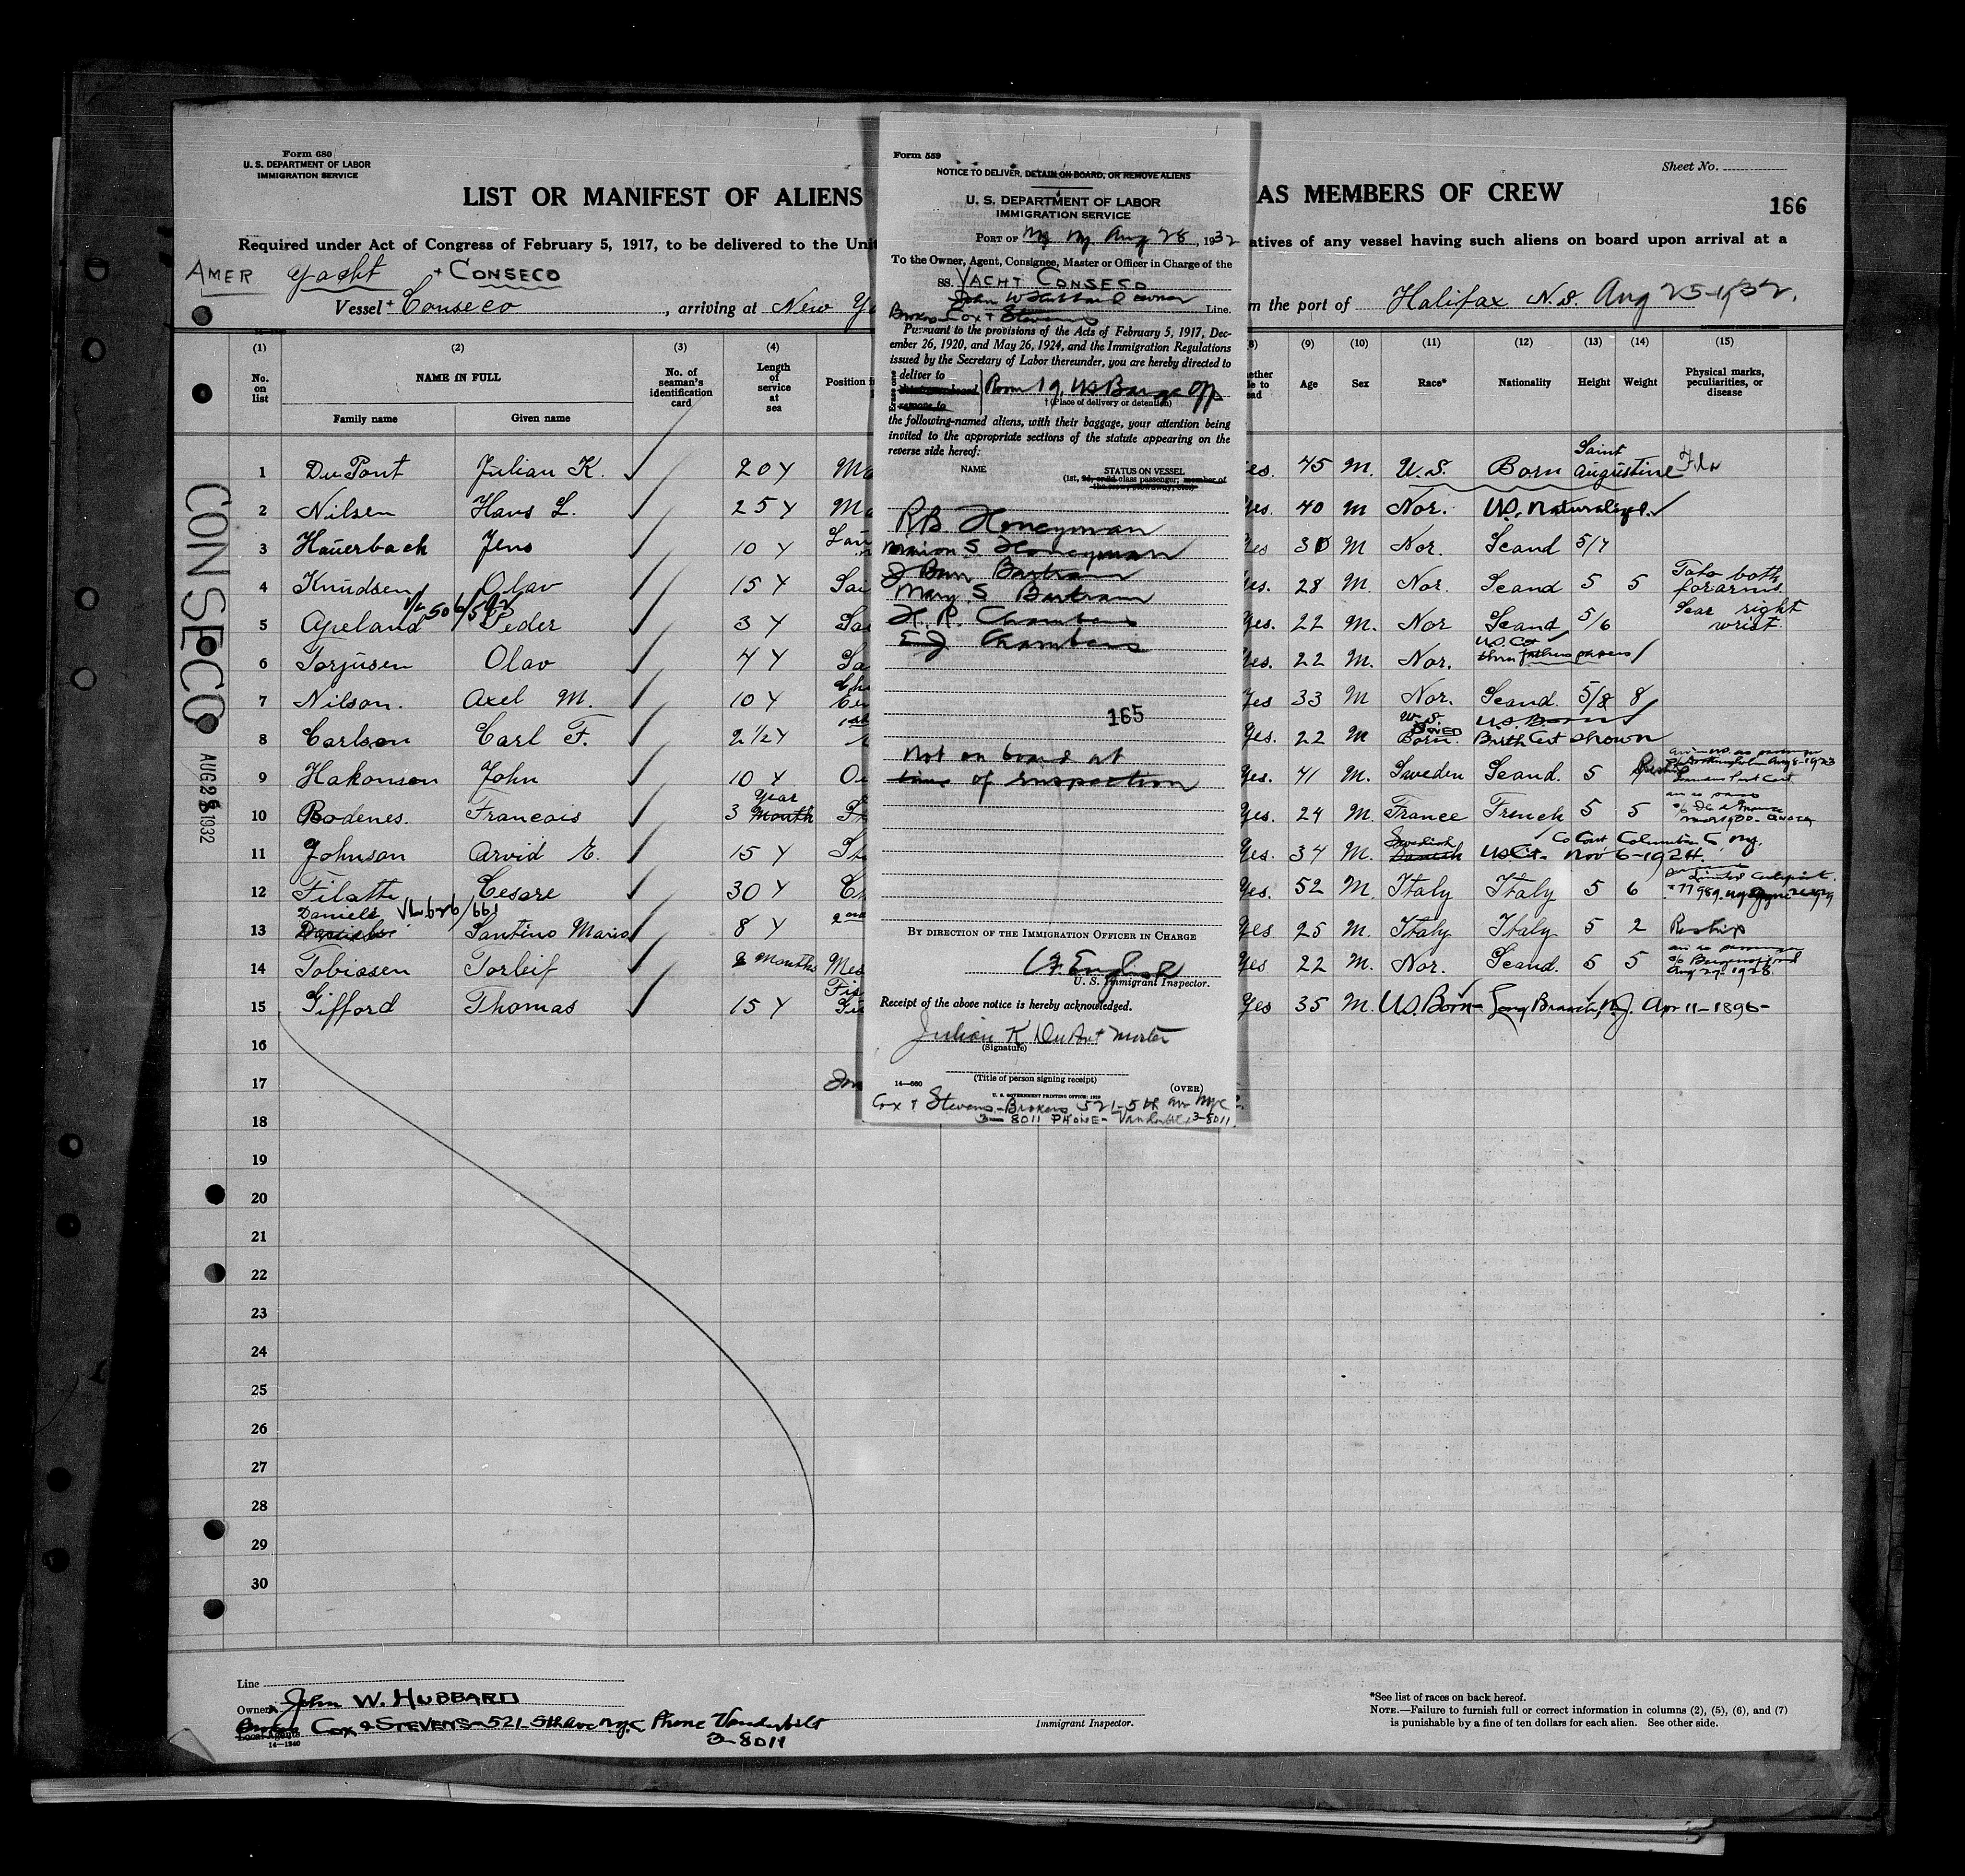 Form 680
U. S. DEPARTMENT OF LABOR
IMMIGRATION SERVICE
Sheet No.
LIST OR MANIFEST OF ALIENS
AS MEMBERS OF CREW
166
Required under Act of Congress of February 5, 1917, to be delivered to the Unit
atives of any vessel having such aliens on board upon arrival at a
AMER Yacht + CONSECO
Vessel + Conseco , arriving at New Yo
m the port of Halifax N.S. Aug 25-1932.
(1) (2) (3) (4)
No. on list
NAME IN FULL
Family name Given name
No. of seaman's identification card
Length of service at sea
Position i
(8) (9) (10) (11) (12) (13) (14) (15)
Age Sex Race* Nationality Height Weight Physical marks, peculiarities, or disease
1 DuPont Julian K. 20 Y Ma es. 45 M. U.S. Born Saint Augustine Fla
2 Nilsen Hans L. 25 Y Ma Yes. 40 M Nor. U.S. Naturalized.
3 Hauerbach Jens 10 Y Yes 30 M Nor. Scand 5/7
4 Knudsen Olav 15 Y Sai Yes. 28 M. Nor Scand 5 5 Tato both forarms
5 Apeland Peder 3 Y Sa Yes. 22 M. Nor Scand 5/6 Scar right wrist
6 Torjusen Olav 4 Y Sa Yes. 22 M. Nor. U.S. Cit thru fathers papers
7 Nilson. Axel M. 10 Y Yes 33 M Nor. Scand. 5/8 8
8 Carlson Carl F. 2 1/2 Y Yes. 22 M U.S. Born. U.S. Born Birth Cert shown
9 Hakonson John 10 Y Yes. 41 M. Sweden Scand. 5
10 Bodenes. Francois 3 Year Month Yes. 24 M. France French 5 5
11 Johnson Arvid E. 15 Y Yes. 34 M. Swedish Danish US Cit. Nov 6-1924.
12 Filatte Cesare 30 Y Yes. 52 M. Italy Italy 5 6
13 Daniele Santino Mario 8 Y Yes 25 M. Italy Italy 5 2 Reship
14 Tobiasen Torleif 2 Months Mes Yes 22 M. Nor. Scand. 5 5 Aug 27-1928
15 Gifford Thomas 15 Y Yes 35 M. U.S. Born- Long Branch, N.J. Apr 11-1896-
16
17
18
19
20
21
22
23
24
25
26
27
28
29
30
CONSECO
AUG 28 1932
Form 559
NOTICE TO DELIVER, DETAIN ON BOARD, OR REMOVE ALIENS
U. S. DEPARTMENT OF LABOR
IMMIGRATION SERVICE
PORT OF NY NY Aug 28, 1932
To the Owner, Agent, Consignee, Master or Officer in Charge of the
SS. YACHT CONSECO
John W Hubbard owner
Brokers Cox + Stevens Line.
Pursuant to the provisions of the Acts of February 5, 1917, Dec-
ember 26, 1920, and May 26, 1924, and the Immigration Regulations
issued by the Secretary of Labor thereunder, you are hereby directed to
deliver to
remove to
Room 19, US Barge Off
† (Place of delivery or detention)
the following-named aliens, with their baggage, your attention being
invited to the appropriate sections of the statute appearing on the
reverse side hereof:
NAME STATUS ON VESSEL
(1st, 2d, or 3d class passenger; member of
the crew, stowaway, etc.)
RB Honeyman
Marion S. Honeyman
J Burr Bartram
Mary S Bartram
H. R. Chambers
E J Chambers
165
Not on board at
time of inspection
BY DIRECTION OF THE IMMIGRATION OFFICER IN CHARGE
English
U. S. Immigrant Inspector.
Receipt of the above notice is hereby acknowledged.
Julian K DuPont Master
(Signature)
(Title of person signing receipt)
14—660 (OVER)
U. S. GOVERNMENT PRINTING OFFICE: 1929
Cox + Stevens - Brokers 521-5th Av NYC
3-8011 PHONE - Vanderbilt 3-8011
Line
Owners John W. HUBBARD
Brokers Cox & STEVENS-521-5th Ave NYC Phone Vanderbilt
3-8011
Local Agents
14—1240
Immigrant Inspector.
*See list of races on back hereof.
NOTE.—Failure to furnish full or correct information in columns (2), (5), (6), and (7)
is punishable by a fine of ten dollars for each alien. See other side.